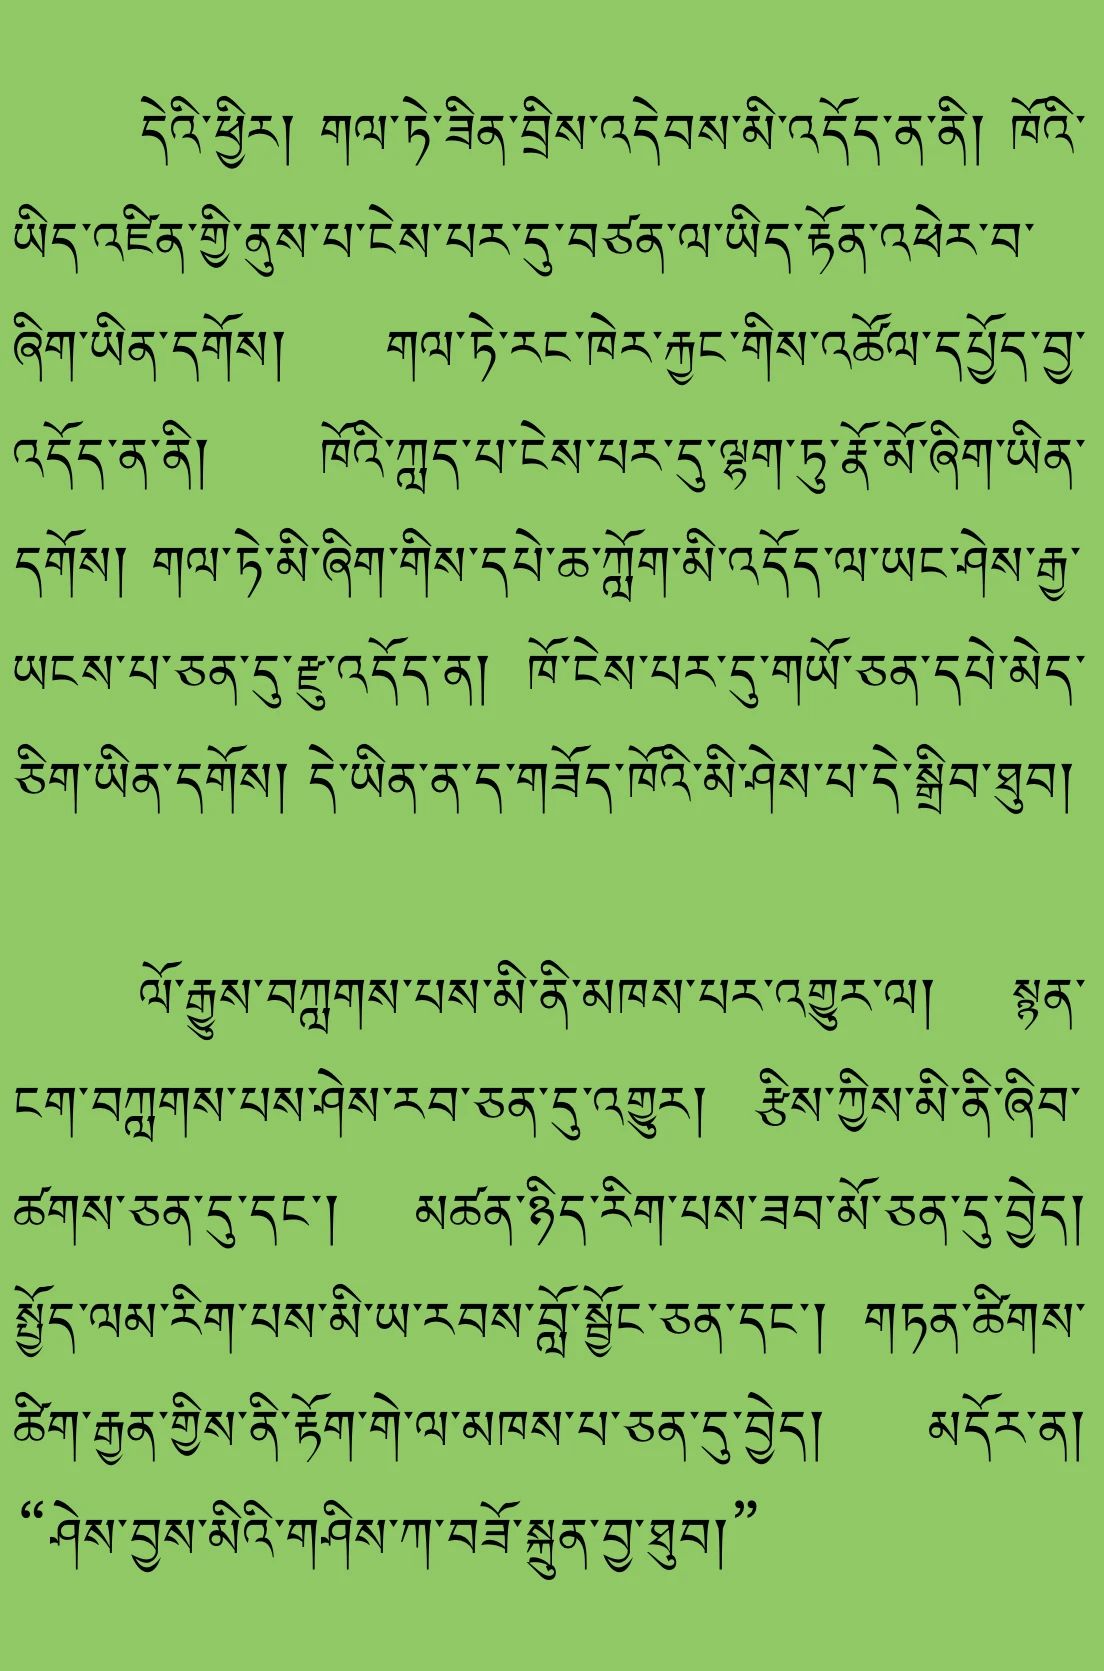 དེའི་ཕྱིར། གལ་ཏེ་ཟིན་བྲིས་འདེབས་མི་འདོད་ན་ནི། ཁོའི་
ཡིད་འཛིན་གྱི་ནུས་པ་ངེས་པར་དུ་བཙན་ལ་ཡིད་རྟོན་འཕེར་བ་
ཞིག་ཡིན་དགོས། གལ་ཏེ་རང་ཁེར་རྐྱང་གིས་འཚོལ་དཔྱོད་བྱ་
འདོད་ན་ནི། ཁོའི་ཀླད་པ་ངེས་པར་དུ་ལྷག་ཏུ་རྣོ་མོ་ཞིག་ཡིན་
དགོས། གལ་ཏེ་མི་ཞིག་གིས་དཔེ་ཆ་ཀློག་མི་འདོད་ལ་ཡང་ཤེས་རྒྱ་
ཡངས་པ་ཅན་དུ་རྫུ་འདོད་ན། ཁོ་ངེས་པར་དུ་གཡོ་ཅན་དཔེ་མེད་
ཅིག་ཡིན་དགོས། དེ་ཡིན་ན་ད་གཟོད་ཁོའི་མི་ཤེས་པ་དེ་སྒྲིབ་ཐུབ།
ལོ་རྒྱུས་བཀླགས་པས་མི་ནི་མཁས་པར་འགྱུར་ལ། སྙན་
ངག་བཀླགས་པས་ཤེས་རབ་ཅན་དུ་འགྱུར། རྩིས་ཀྱིས་མི་ནི་ཞིབ་
ཚགས་ཅན་དུ་དང་། མཚན་ཉིད་རིག་པས་ཟབ་མོ་ཅན་དུ་བྱེད།
སྤྱོད་ལམ་རིག་པས་མི་ཡ་རབས་བློ་སྦྱོང་ཅན་དང་། གཏན་ཚིགས་
ཚིག་རྒྱན་གྱིས་ནི་རྟོག་གེ་ལ་མཁས་པ་ཅན་དུ་བྱེད། མདོར་ན།
“ཤེས་བྱས་མིའི་གཤིས་ཀ་བཟོ་སྐྲུན་བྱ་ཐུབ།”